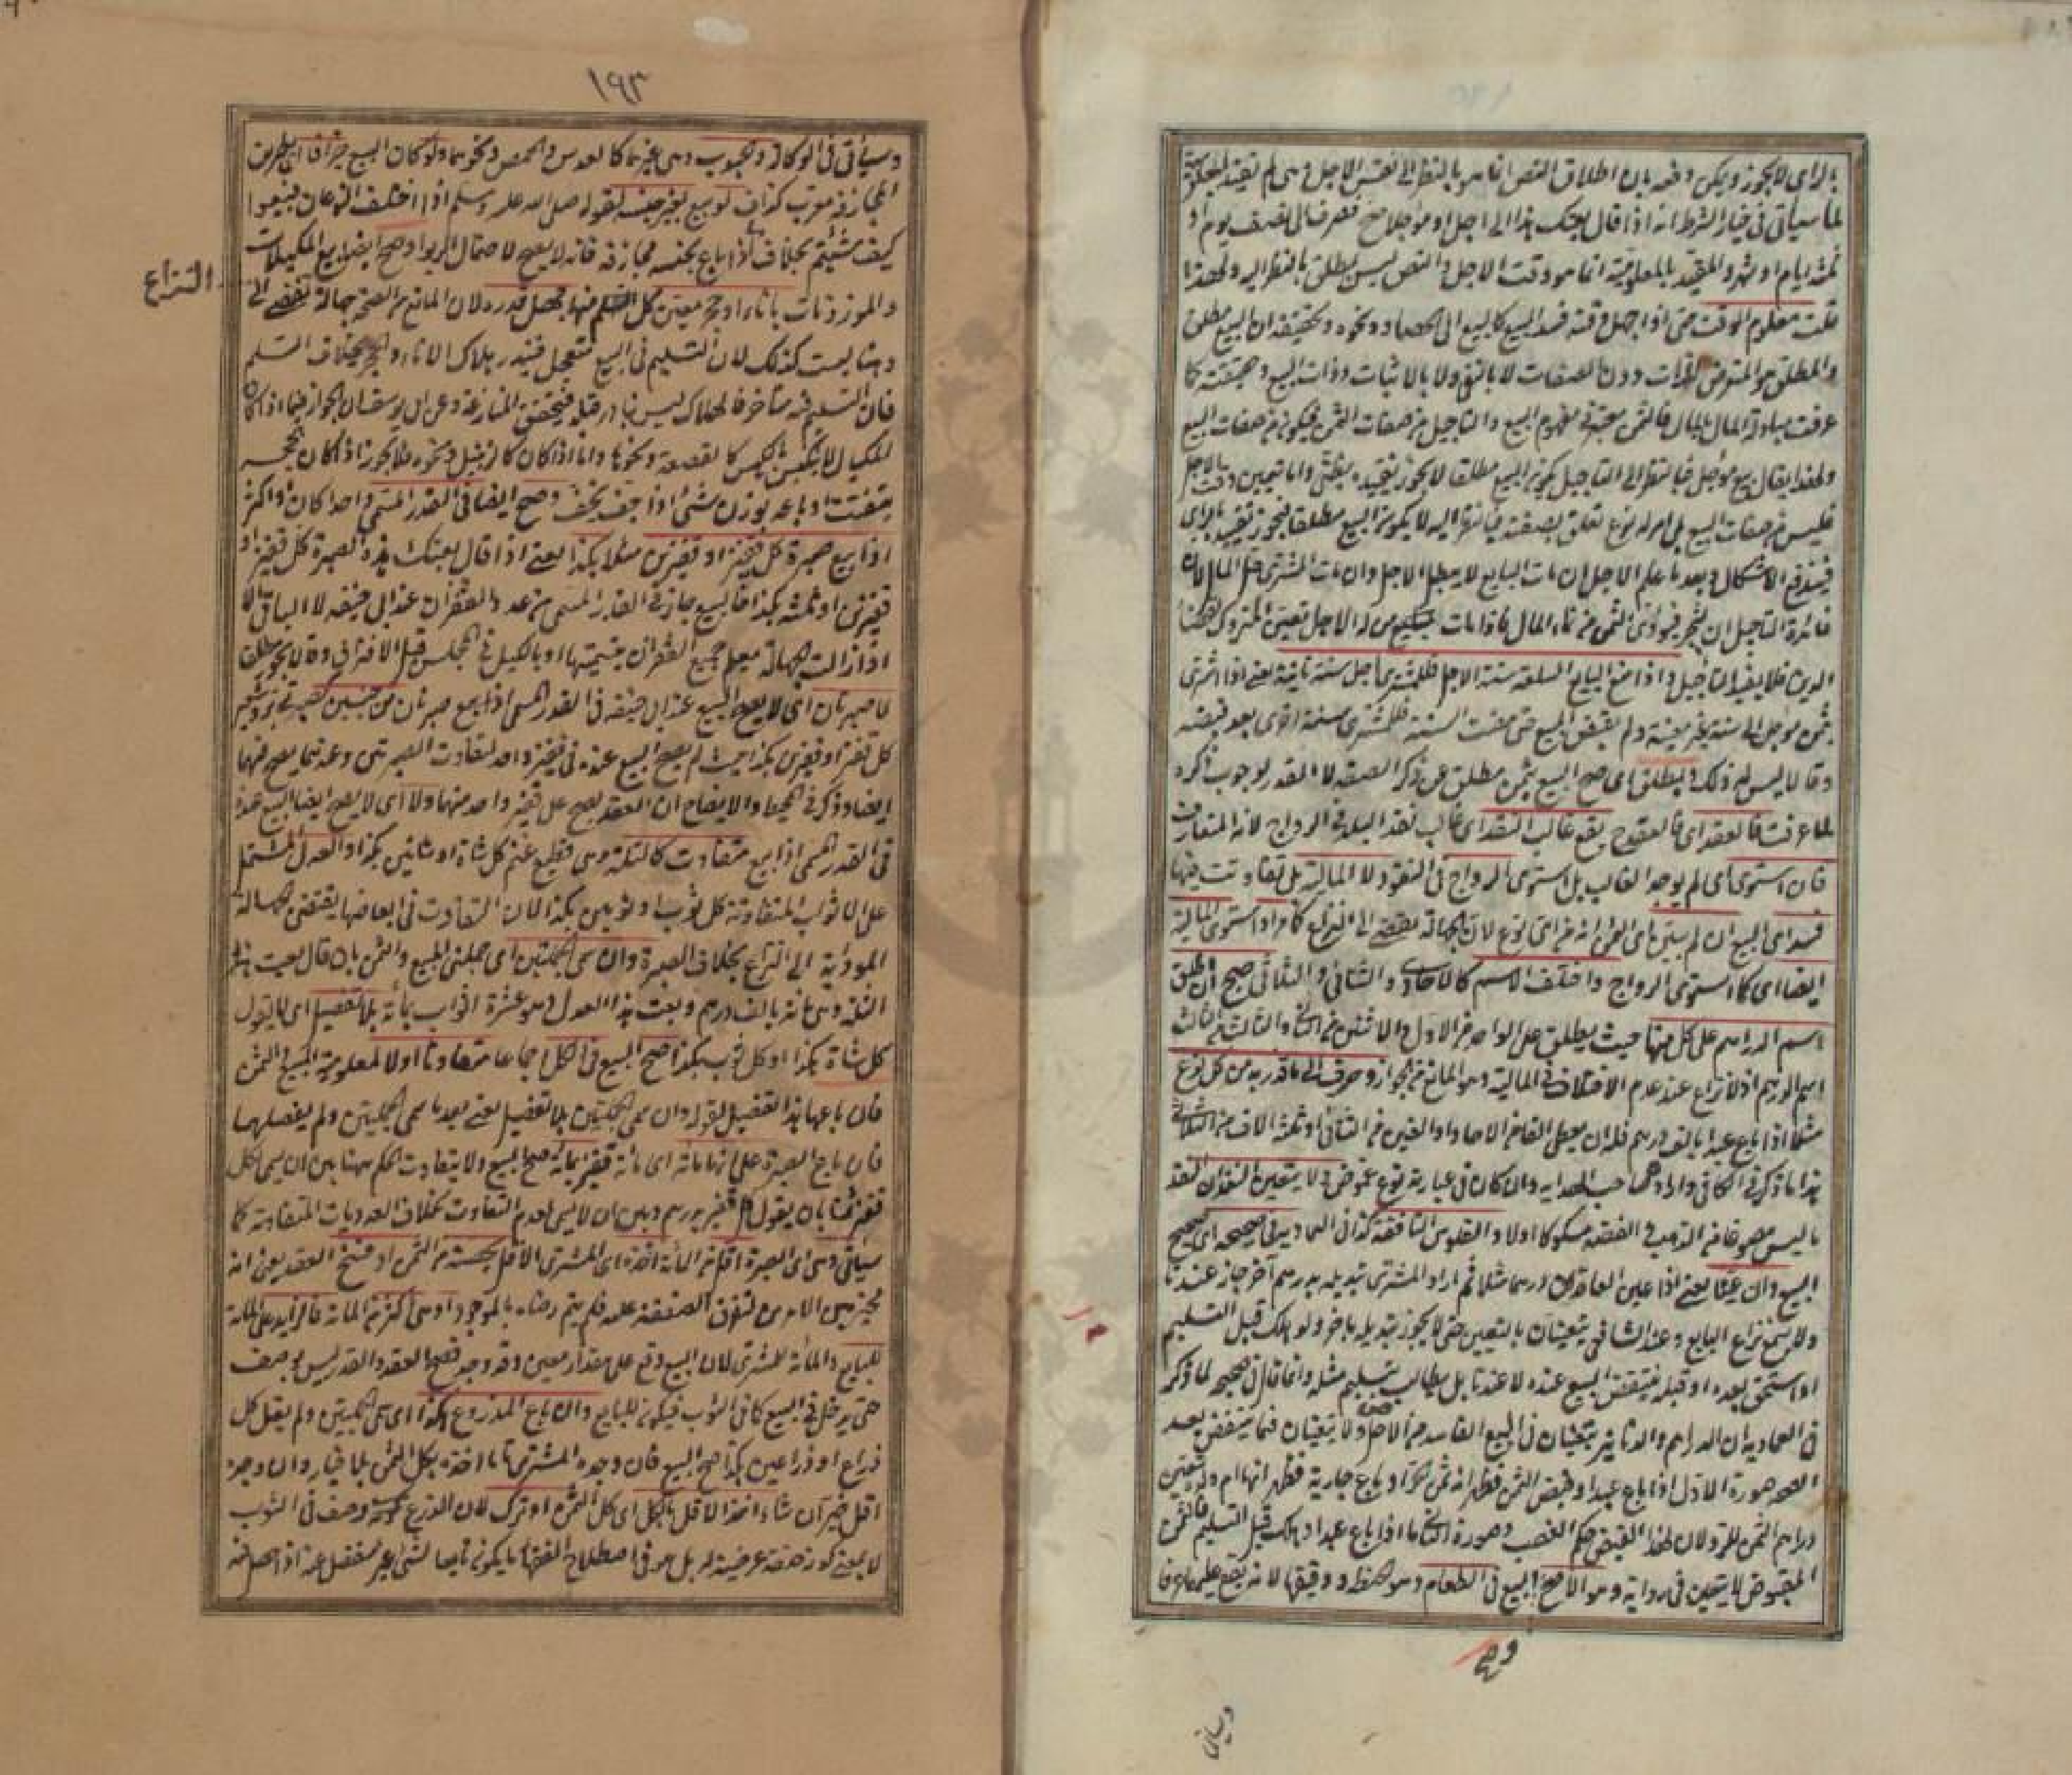 بالرأي لا يجوز ويمكن دفعه بان اطلاق النص انما هو بالنظر الى نفس الاجل وهى لم تقيد
لما سيأتي في خيار الشرط انه اذا قال بعتك هذا الى اجل او مؤجلا صح فصرفناه الى نصف يوم او
ثلثة ايام او شهر والمقيد بالمعلومية انما هو وقت الاجل والنص ليس بمطلق بالنظر اليه ولهذا
قلت معلوم الوقت حتى اذا جهل وقته فسد البيع كالبيع الى الحصاد ونحوه وتحقيقه ان البيع مطلق
والمطلق هو المتعرض للذات دون الصفات لا بالنفى ولا بالاثبات وذات البيع وحقيقته كما
عرفت مبادلة المال بالمال فالثمن معتبر فى مفهوم البيع والتأجيل من صفات الثمن فيكون من صفات البيع
ولهذا يقال بيع مؤجل فبالنظر الى التأجيل يكون البيع مطلقا لا يجوز تقييده بظنى واما تعيين وقت الاجل
فليس من صفات البيع بل امر له نوع تعلق بصفته فبالنظر اليه لا يكون البيع مطلقا فيجوز تقييده بالرأى
فيندفع الاشكال وبعد ما علم الاجل ان مات البايع لا يبطل الاجل وان مات المشترى حل المال لان
فائدة التأجيل ان يتجر فيؤدى الثمن من نماء المال فاذا مات من له الاجل تعين المتروك لقضاء
الدين فلا يفيد التأجيل واذا منع البايع السلعة سنة الاجل فللمشترى اجل سنة ثانية يعنى اذا اشترى
بثمن مؤجل الى سنة غير معينة ولم يقبض المبيع حتى مضت السنة فللمشترى سنة اخرى بعد قبضه
وقالا ليس له ذلك وبمطلق اى صح البيع بثمن مطلق عن ذكر الصفة لا القدر لوجوب ذكره
لما عرفت فالعقد اى فالعقد ح يقع غالب النقد اى غالب نقد البلد فى الرواج لانه المتعارف
فان استوى اى لم يوجد الغالب بل استوى الرواج فى النقود لا المالية بل تفاوتت فيها
فسد اى البيع ان لم يبين اى الثمن انه من اى نوع لان الجهالة تفضى الى النزاع كما مر او استوى المالية
ايضا اى كما استوى الرواج واختلف الاسم كالاحادى والثنائى والثلاثى صح ان اطلق
اسم الدراهم على كل منها حيث يطلق على الواحد من الاول والاثنين من الثانى والثالثة من الثالث
اسم الدرهم اذ لا نزاع عند عدم الاختلاف فى المالية وهو المانع من الجواز وصرف الى ما قدر به من كل نوع
مثلا اذا باع عبدا بالف درهم فله ان يعطى الفا من الاحاد او الفين من الثنائى او ثلثة الاف من الثلاثى
هذا ما ذكر فى الكافى واراده صاحب الهداية وان كان فى عبارته نوع غموض ولا يتعين النقدان النقد
ما ليس بمصوغ من الذهب والفضة مسكوكا اولا والفلوس النافقة كذا فى العمادية فى صحيحه اى صحيح
البيع وان عينا يعنى اذا عين العاقدان درهما مثلا ثم اراد المشترى تبديله بدرهم آخر جاز عندنا
ولا يسمع نزاع البايع وعند الشافعى يتعينان بالتعيين حتى لا يجوز تبديله بآخر ولو هلك قبل التسليم
او استحق بعده او قبله فينتقض البيع عنده لا عندنا بل يطالب بتسليم مثله وانما قال فى صحيحه لما ذكر
فى العمادية ان الدراهم والدنانير يتعينان فى البيع الفاسد من الاصل ولا يتعينان فيما ينتقض بعد
الصحة صورة الاول اذا باع عبدا وقبض الثمن فظهر انه حر او باع جارية فظهر انها ام ولد يتعين
دراهم الثمن للرد لان لهذا القبض حكم الغصب وصورة الثانى ما اذا باع عبدا وهلك قبل التسليم فالثمن
المقبوض لا يتعين فى رواية وهو الاصح البيع فى الطعام وهو الحنطة ودقيقها لانه يقع عليهما عرفا
وصح
وسيأتى
١٩٣
وسيأتى فى الوكالة والحبوب وهى غيرهما كالعدس والحمص ونحوهما ولو كان البيع جزافا اى بطريق
المجازفة معرب كزاف لو بيع بغير جنسه لقوله صلى الله عليه وسلم اذا اختلف النوعان فبيعوا
كيف شئتم بخلاف ما اذا باع بجنسه مجازفة فانه لا يصح لاحتمال الربوا وصح ايضا بيع المكيلات
والموزونات باناء او حجر معين كل منهما جهل قدره لان المانع من الصحة جهالة تفضى الى
النزاع
وهنا ليست كذلك لان التسليم فى البيع متعجل فيندر هلاك الاناء والحجر بخلاف السلم
فان التسليم فيه متأخر فالهلاك ليس بنادر قبله فيتحقق المنازعة وعن ابى يوسف ان الجواز فيما اذا كان
المكيال لا ينكبس بالكبس كالقصعة ونحوها واما اذا كان كالزنبيل ونحوه فلا يجوز اذا كان الحجر
يتفتت او باعه بوزن شئ اذا جف يخف وصح ايضا فى القدر المسمى واحدا كان او اكثر
اذا بيع صبرة كل قفيز او قفيزين مثلا بكذا يعنى اذا قال بعتك هذه الصبرة كل قفيز او
قفيزين او ثلثة بكذا فالبيع جاز فى القدر المسمى من عدد القفزان عند ابى حنيفة لا الباقى الا
اذا زالت الجهالة بعلم جميع القفزان بتسميتها او بالكيل فى المجلس قبل الافتراق وقالا يجوز مطلقا
لا صبرتان اى لا يصح البيع عند ابى حنيفة فى القدر المسمى اذا بيع صبرتان من جنسين كصبرتى بر وشعير
كل قفيز او قفيزين بكذا حيث لم يصح البيع عنده فى قفيز واحد لتفاوت الصبرتين وعندهما يصح فيهما
ايضا وذكر فى المحيط والايضاح ان العقد يصح على قفيز واحد منهما ولا اى لا يصح ايضا البيع عنده
فى القدر المسمى اذا بيع متفاوت كالثلة وهى قطيع غنم كل شاة او شاتين بكذا والعدل المشتمل
على الاثواب المتفاوتة كل ثوب او ثوبين بكذا لان التفاوت فى ابعاضها يقتضى الجهالة
المودية الى النزاع بخلاف الصبرة وان سمى الجملتين اى جملتى المبيع والثمن بان قال بعت هذه
الثلة وهى مائة بالف درهم وبعت هذا العدل وهو عشرة اثواب بمائة بلا تفصيل اى لا يقول
كل شاة بكذا او كل ثوب بكذا صح البيع فى الكل اجماعا متفاوتا اولا لمعلومية المبيع والثمن
فان باعها هذا تفصيل لقوله وان سمى الجملتين بلا تفصيل يعنى بعد ما سمى الجملتين ولم يفصلهما
فان باع الصبرة على انها مائة اى مائة قفيز بمائة صح البيع ولا يتفاوت الحكم ههنا بين ان يسمى لكل
قفيز ثمنا بان يقول كل قفيز بدرهم وبين ان لا يسمى لعدم التفاوت بخلاف العدديات المتفاوتة كما
سيأتى وهى اى الصبرة اقل من المائة اخذه اى المشترى الاقل بحصته من الثمن او فسخ العقد يعنى انه
مخير بين الامرين لتفرق الصفقة عليه فلم يتم رضاه بالموجود او هى اكثر من المائة فالزايد على المائة
للبايع والمائة للمشترى لان البيع وقع على مقدار معين وقد وجد فصح العقد والقدر ليس بوصف
حتى يدخل فى البيع كما فى الثوب فيكون للبايع وان باع المذروع هكذا اى سمى الجملتين ولم يقل كل
ذراع او ذراعين بكذا صح البيع فان وجده المشترى تاما اخذه بكل الثمن بلا خيار وان وجده
اقل خير ان شاء اخذ الاقل بالكل اى كل الثمن او ترك لان الذرع وصف فى الثوب
لا بمعنى كونه صفة عرضية له بل هو فى اصطلاح الفقهاء ما يكون تابعا لشئ غير منفصل عنه اذا حصل فيه